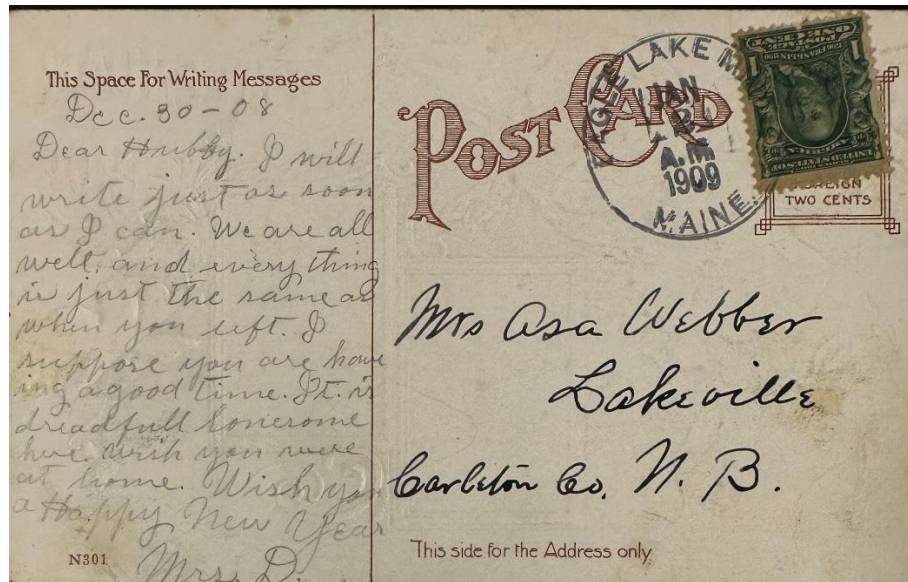 This Space For Writing Messages
Dec. 30-08
Dear Hubby. I will
write just as soon
as I can. We are all
well, and every thing
is just the same as
when you left. I
suppose you are have
ing a good time. It is
dreadfull lonesome
here. wish you were
at home. Wish you
a Happy New Year
Mrs. D.
N301
POST CARD
EAGLE LAKE
JAN
A.M.
1909
MAINE.
POSTAGE
ONE CENT
1
1
UNITED STATES OF AMERICA
FOREIGN
TWO CENTS
Mrs Asa Webber
Lakeville
Carleton Co. N. B.
This side for the Address only